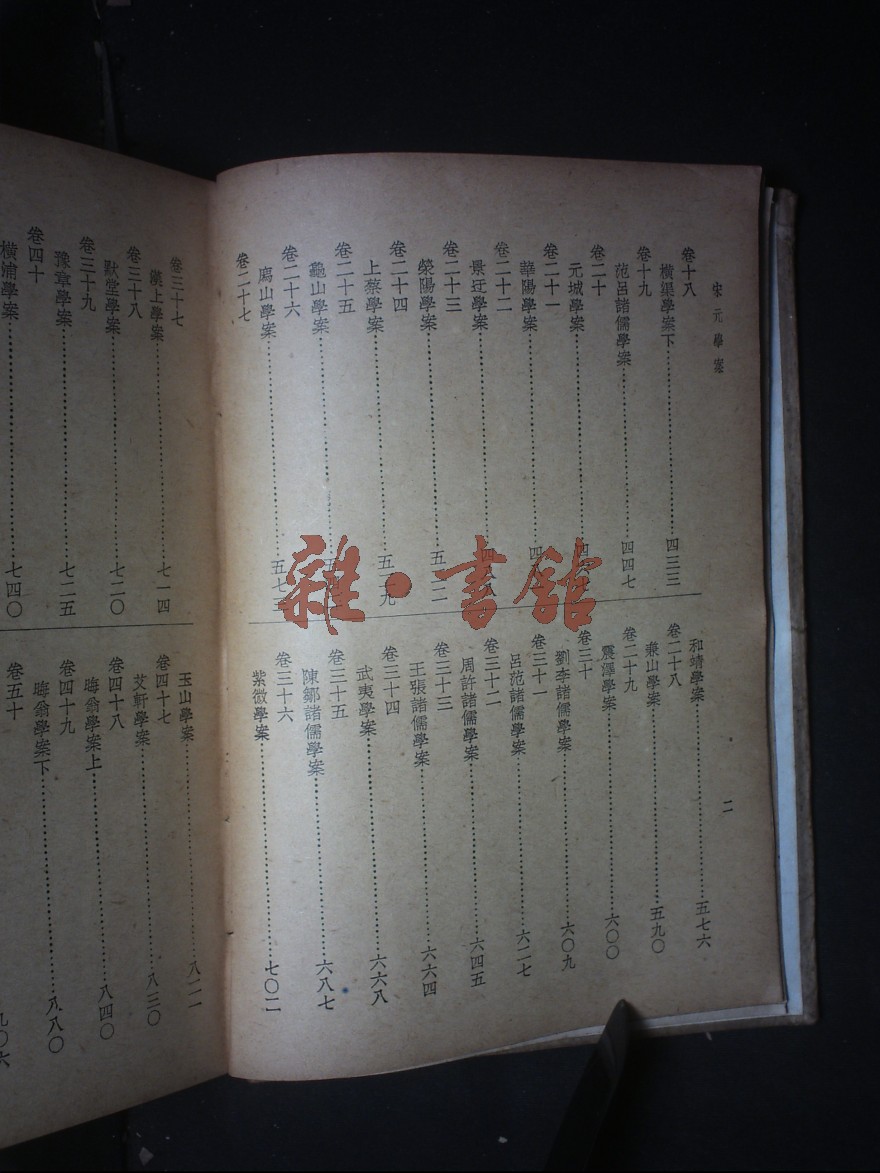 宋元學案
卷十八
橫渠學案下……四三三
卷十九
范呂諸儒學案……四四七
卷二十
元城學案……四
卷二十一
華陽學案……四
卷二十二
景迂學案……四
卷二十三
滎陽學案……五
卷二十四
上蔡學案……五 九
卷二十五
龜山學案……五
卷二十六
廌山學案……五七
卷二十七
和靖學案……五七六
卷二十八
兼山學案……五九〇
卷二十九
震澤學案……六〇〇
卷三十
劉李諸儒學案……六〇九
卷三十一
呂范諸儒學案……六二七
卷三十二
周許諸儒學案……六四五
卷三十三
王張諸儒學案……六六四
卷三十四
武夷學案……六六八
卷三十五
陳鄒諸儒學案……六八七
卷三十六
紫微學案……七〇二
二
卷三十七
漢上學案……七一四
卷三十八
默堂學案……七二〇
卷三十九
豫章學案……七二五
卷四十
橫浦學案……七四〇
玉山學案……八二一
卷四十七
艾軒學案……八三〇
卷四十八
晦翁學案上……八四〇
卷四十九
晦翁學案下……八八〇
卷五十
九〇六
雜·書館